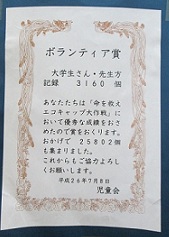 ボランティア賞
大学生さん・先生方
記録 3160 個
あなたたちは「命を救え
エコキャップ大作戦」に
おいて優秀な成績をおさ
めたので賞をおくります。
おかげで 25802個
も集まりました。
これからもご協力よろし
くお願いします。
平成26年7月8日
児童会